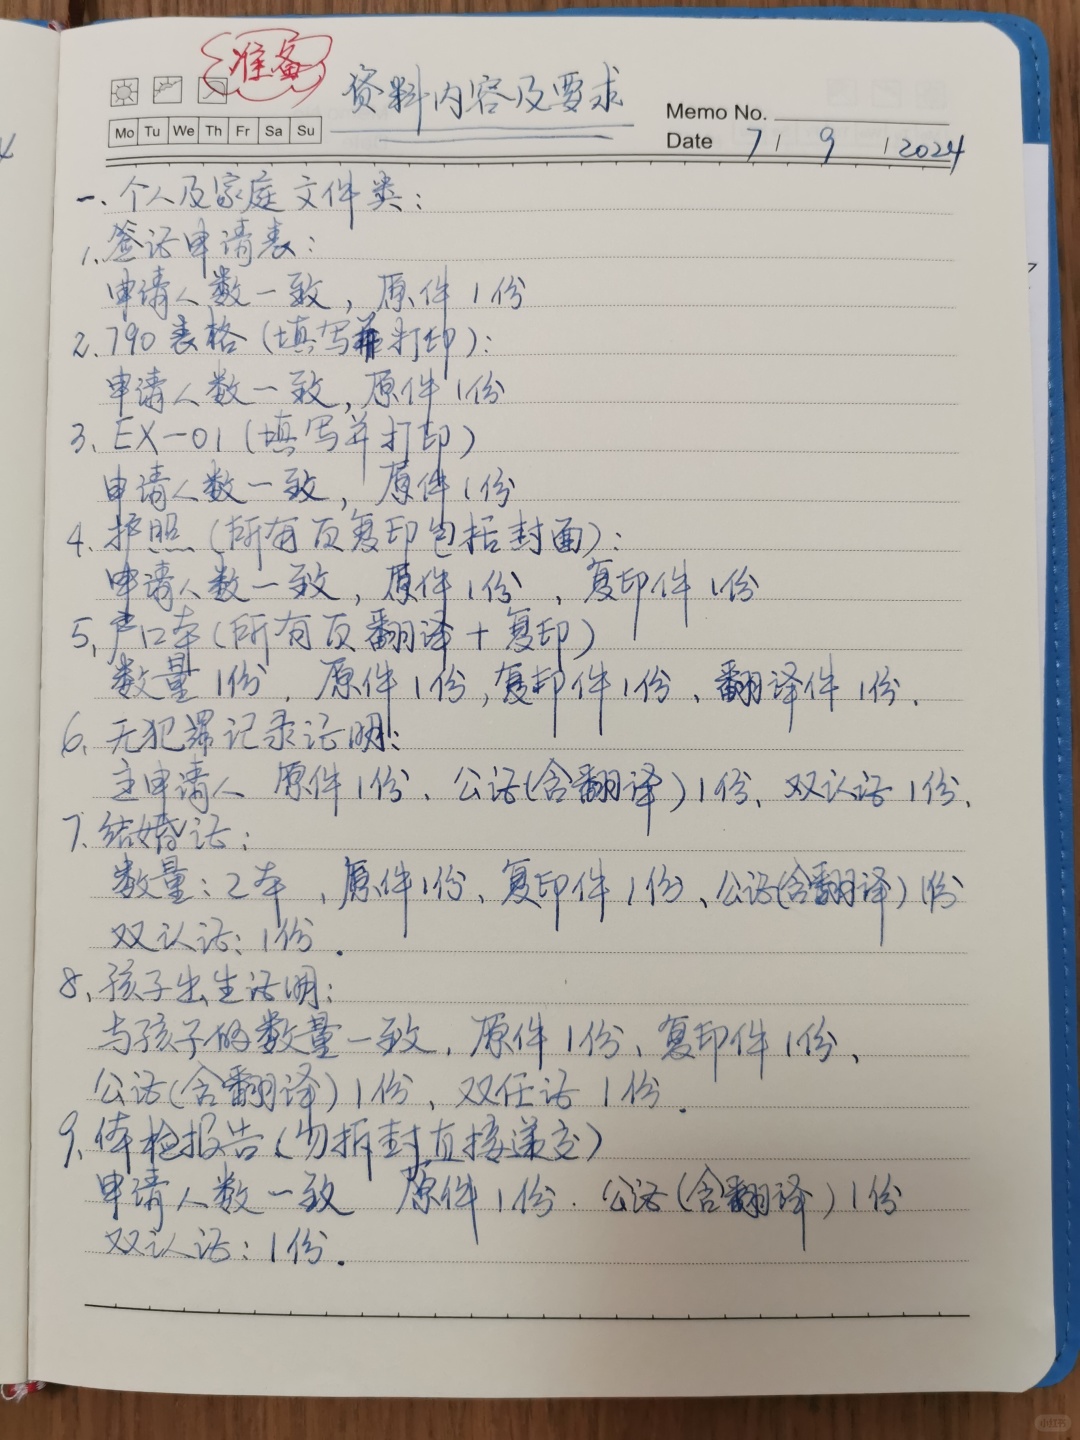 准备
资料内容及要求
Memo No.
Mo Tu We Th Fr Sa Su
Date 7 / 9 / 2024
一、个人及家庭文件类：
1、签证申请表：
申请人数一致，原件1份
2、790表格（填写并打印）：
申请人数一致，原件1份
3、EX-01（填写并打印）
申请人数一致，原件1份
4、护照（所有页复印包括封面）：
申请人数一致，原件1份，复印件1份
5、户口本（所有页翻译+复印）
数量1份，原件1份，复印件1份、翻译件1份.
6、无犯罪记录证明：
主申请人 原件1份、公证（含翻译）1份、双认证1份、
7、结婚证：
数量：2本，原件1份、复印件1份、公证（含翻译）1份
双认证：1份.
8、孩子出生证明：
与孩子的数量一致，原件1份、复印件1份、
公证（含翻译）1份、双任证1份.
9、体检报告（勿拆封直接递交）
申请人数一致 原件1份.公证（含翻译）1份
双认证：1份.
小红书